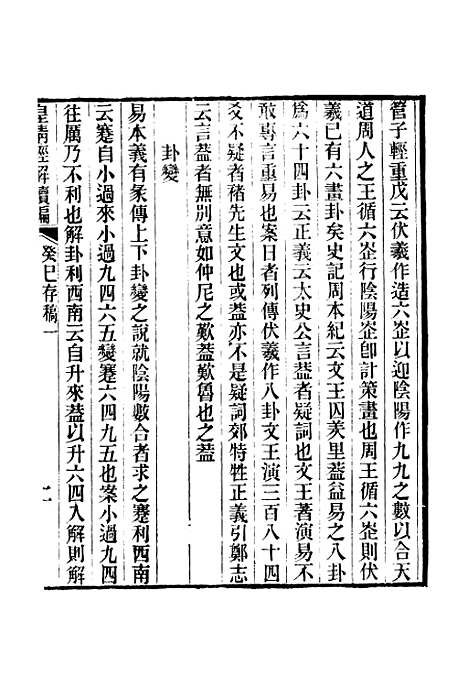 管子輕重戊云伏羲作造六峜以迎陰陽作九九之數以合天
道周人之王循六峜行陰陽峜卽計策畫也周王循六峜則伏
羲已有六畫卦矣史記周本紀云文王囚羑里葢益易之八卦
爲六十四卦云正義云太史公言葢者疑詞也文王著演易不
敢專言重易也案日者列傳伏羲作八卦文王演三百八十四
爻不疑者褚先生文也或葢亦不是疑詞郊特牲正義引鄭志
云言葢者無別意如仲尼之歎葢歎魯也之葢
卦變
易本義有彖傳上下卦變之說就陰陽數合者求之蹇利西南
云蹇自小過來小過九四六五變蹇六四九五也案小過九四
往厲乃不利也解卦利西南云自升來葢以升六四入解則解
皇清經解續編
癸巳存稿一